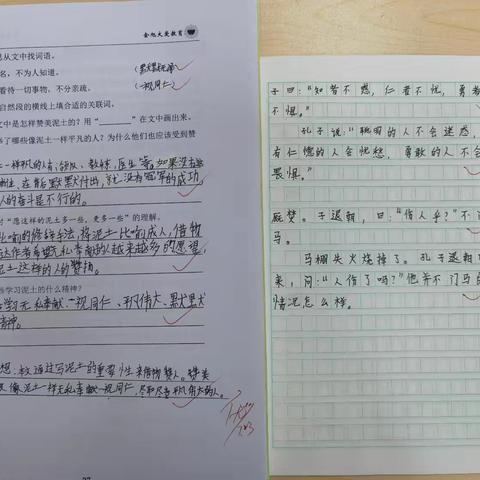 金旭大爱教育
从文中找词语。
名，不为人知道。（默默无闻）
看待一切事物，不分亲疏。（一视同仁）
自然段的横线上填合适的关联词。
文中是怎样赞美泥土的？用“________”在文中画出来。
了哪些像泥土一样平凡的人？为什么他们也应该受到赞
一样平凡的人有：教练、医生等。如果没有
在背后默默付出，就没有冠军的成功，
人的奋斗是不行的。
对“愿这样的泥土多一些，更多一些”的理解。
比喻的修辞手法，将泥土比喻成人，借物
达作者希望无私奉献的人越来越多的愿望，
泥土这样的人的赞扬。
学习泥土的什么精神？
学习无私奉献、一视同仁、平凡伟大、默默无
精神。
想：本文通过写泥土的重要性来借物赞人。赞美
像泥土一样无私奉献、一视同仁、
27
子曰：“知者不惑，仁者不忧，勇者
不惧。”
孔子说：“聪明的人不会迷惑，
有仁德的人会忧愁，勇敢的人不会
畏惧。”
厩焚。子退朝，曰：“伤人乎？”不
马。
马棚失火烧掉了。孔子退朝
来，问：“人伤了吗？”他并不问马的
情况怎么样。